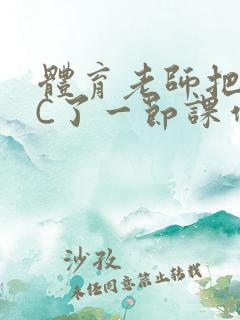 體育老師把
C了一節課
沙孜
未經同意禁止轉載